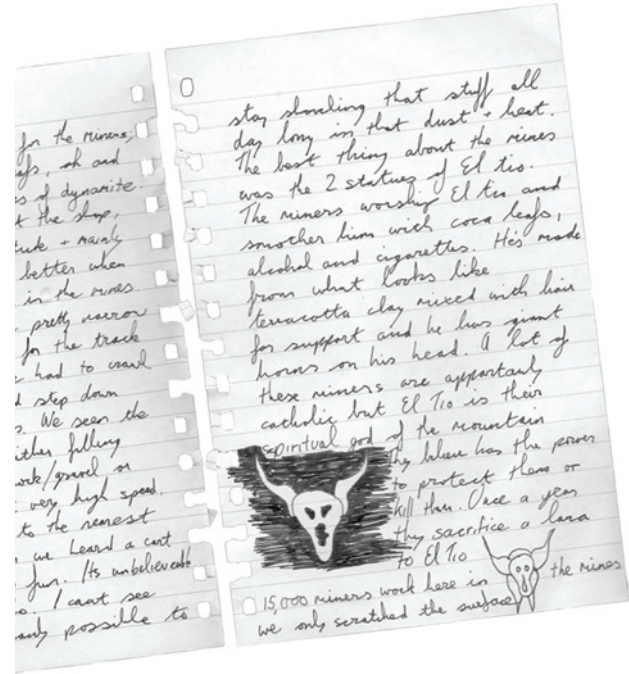 for the miners;
leafs, oh and
s of dynamite.
t the shop,
+ mainly
better when
in the mines
pretty narrow
for the track
had to crawl
d step down
s. We seen the
either filling
rock/gravel or
very high speed.
to the nearest
we heard a cart
fun. Its unbelievable
o. I cant see
possible to
stay shoveling that stuff all
day long in that dust + heat.
The best thing about the mines
was the 2 statues of El tio.
The miners worship El tio and
smother him with coca leafs,
alcohol and cigarettes. He's made
from what looks like
terracotta clay mixed with hair
for support and he has giant
horns on his head. A lot of
these miners are apportanly
catholic but El Tio is their
spiritual god of the mountain
they believe has the power
to protect them or
kill them. Once a year
they sacrifice a lama
to El Tio
15,000 miners work here in the mines
we only scratched the surface